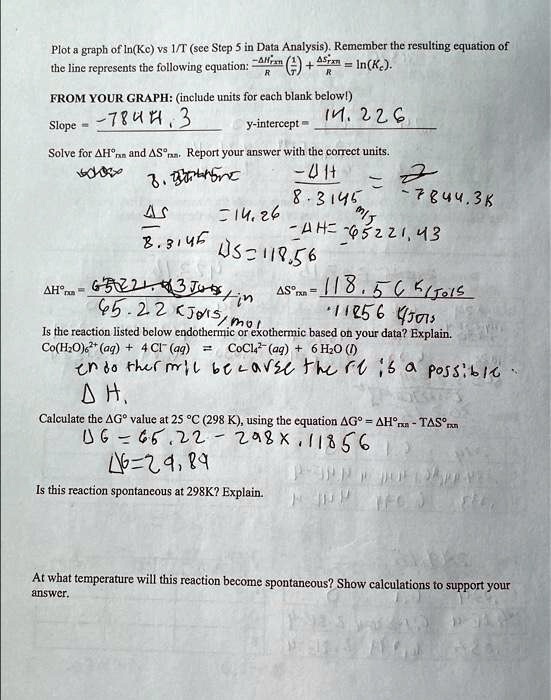 Plot a graph of ln(Kc) vs 1/T (see Step 5 in Data Analysis). Remember the resulting equation of
the line represents the following equation: -ΔH°rxn/R (1/T) + ΔS°rxn/R = ln(Kc).
FROM YOUR GRAPH: (include units for each blank below!)
Slope = -7844.3 y-intercept = 14.226
Solve for ΔH°rxn and ΔS°rxn. Report your answer with the correct units.
-ΔH / 8.3145 = -7844.3K
ΔS / 8.3145 = 14.26
-ΔH = -65221.43
ΔS = 118.56
ΔH°rxn = 65221.43 ΔS°rxn = 118.56
65.22 KJols/mol .11856
Is the reaction listed below endothermic or exothermic based on your data? Explain.
Co(H₂O)₆²⁺ (aq) + 4 Cl⁻ (aq) = CoCl₄²⁻ (aq) + 6 H₂O (l)
endothermic becavse the re is a possible
ΔH.
Calculate the ΔG° value at 25 °C (298 K), using the equation ΔG° = ΔH°rxn - TΔS°rxn
ΔG = 65.22 - 298 x .11856
ΔG = 29.89
Is this reaction spontaneous at 298K? Explain.
At what temperature will this reaction become spontaneous? Show calculations to support your
answer.